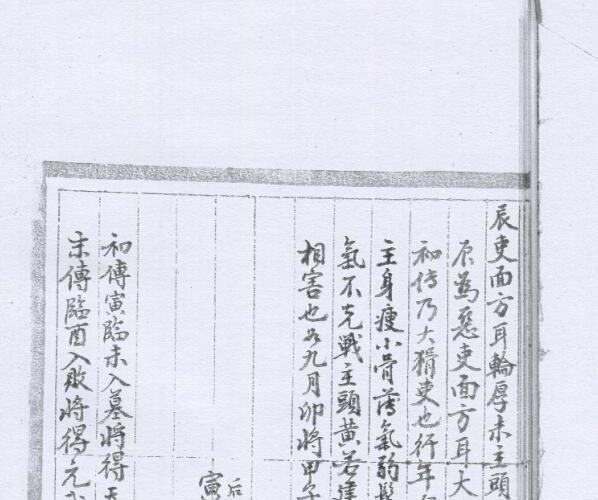 辰吏面方耳輪厚未主頭
辰為惡吏面方耳大
初傳乃大猾吏也行年
主身瘦小骨薄氣弱髮
氣不充戰主頭黄若逢
相害也如九月卯將甲子
后
寅
初傳寅臨未入墓將得天
末傳臨酉入敗將得元武